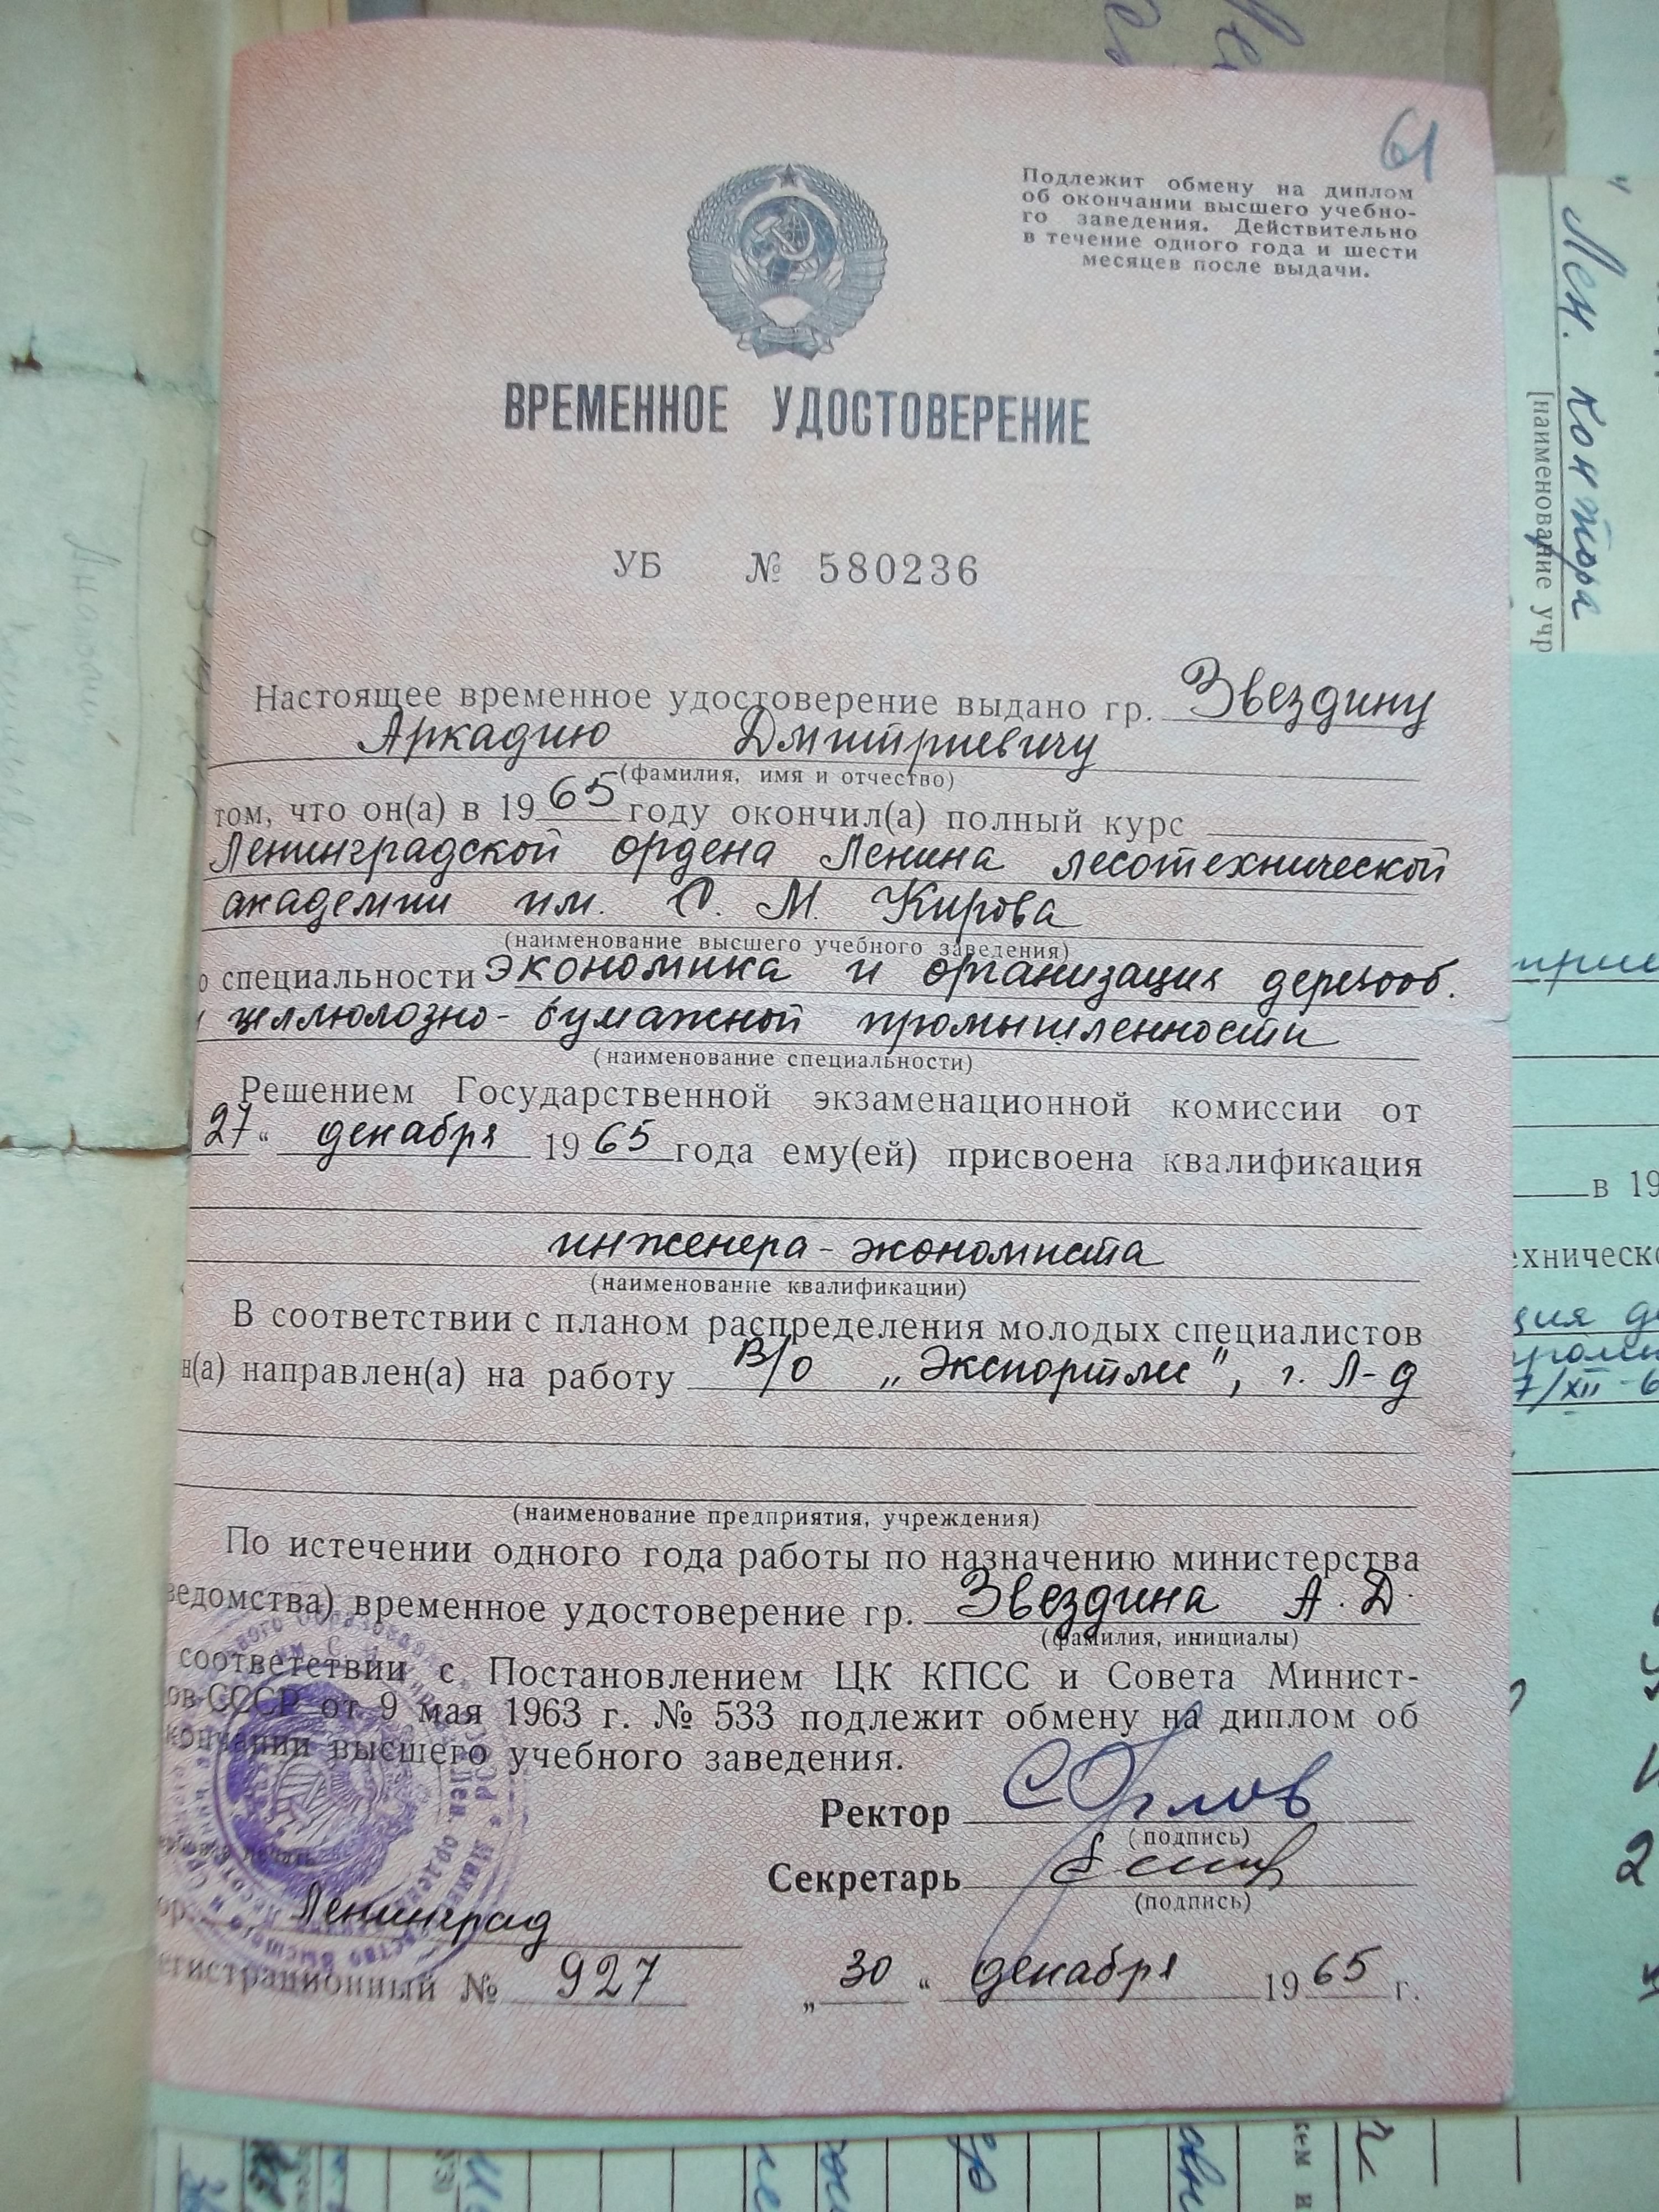 61
Подлежит обмену на диплом
об окончании высшего учебно-
го заведения. Действительно
в течение одного года и шести
месяцев после выдачи.
ВРЕМЕННОЕ УДОСТОВЕРЕНИЕ
УБ № 580236
Настоящее временное удостоверение выдано гр. Звездину
Аркадию Дмитриевичу
(фамилия, имя и отчество)
том, что он(а) в 1965 году окончил(а) полный курс
Ленинградской ордена Ленина лесотехнической
академии им. С. М. Кирова
(наименование высшего учебного заведения)
о специальности экономика и организация деревооб.
и целлюлозно-бумажной промышленности
(наименование специальности)
Решением Государственной экзаменационной комиссии от
27 " декабря 1965 года ему(ей) присвоена квалификация
инженера-экономиста
(наименование квалификации)
В соответствии с планом распределения молодых специалистов
н(а) направлен(а) на работу В/О „Экспортлес", г. Л-д
(наименование предприятия, учреждения)
По истечении одного года работы по назначению министерства
ведомства) временное удостоверение гр. Звездина А. Д.
(фамилия, инициалы)
соответствии с Постановлением ЦК КПСС и Совета Минист-
ов СССР от 9 мая 1963 г. № 533 подлежит обмену на диплом об
кончании высшего учебного заведения.
Ректор СОрлов
(подпись)
Секретарь
(подпись)
ор. Ленинград
егистрационный № 927 „ 30 " декабря 1965 г.
" Лен. контора
[наименование учр
в 19
ехническо
ция де
7/XII-6